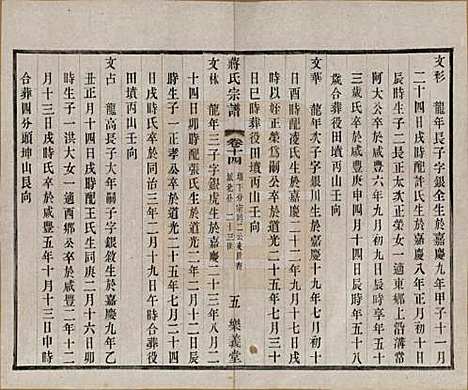 文彬　龍年長子字銀全生於嘉慶九年甲子十一月
二十四日戌時配許氏生於嘉慶八年正月初十日
辰時生子二長正太正榮女一適東鄉上沿溝常
阿大公卒於咸豐六年九月初九日戌時享年五十
三歲氏卒於同治十三年四月十四日辰時年八十
歲合葬役田墳丙山壬向
文華　龍年次子字銀川生於嘉慶十九年七月初八
日酉時配凌氏生於嘉慶二十二年七月初八日戌
時以姪正榮爲嗣公卒於道光二十五年七月三十
日巳時葬役田墳丙山壬向
蔣氏宗譜
卷十四
五
樂義堂
文林　龍年三子字銀虎生於嘉慶二十三年八月二
十四日卯時配張氏生於道光二年二月十日戌
時生子一正孝公卒於道光二十五年七月二十四
日戌時氏卒於同治三年二月十九日午時合葬役
田墳丙山壬向
文占　龍高長子大年嗣子字銀敘生於嘉慶九年乙
丑正月十四日戌時配王氏生同庚二月十六日卯
時生子一洪大女一適西鄉公卒於咸豐二年十二
月十三日戌時氏卒於咸豐五年十月十三日申時
合葬四分頭坤山艮向